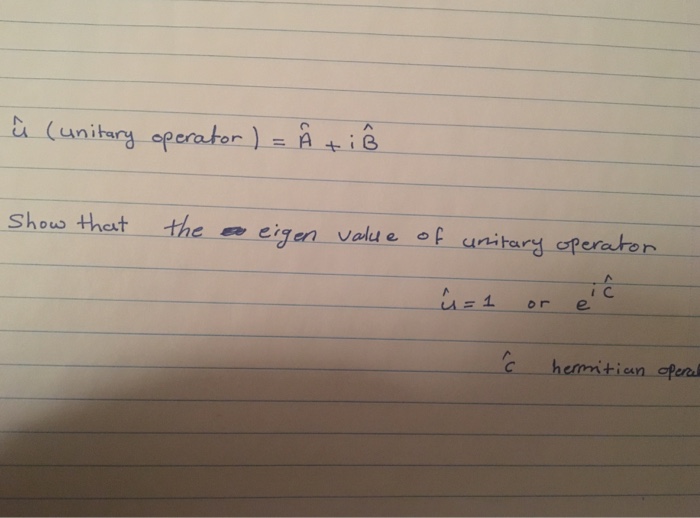 û (unitary operator) = Â + i B̂
Show that the eigen value of unitary operator
û = 1 or e^{iĉ}
ĉ hermitian opera